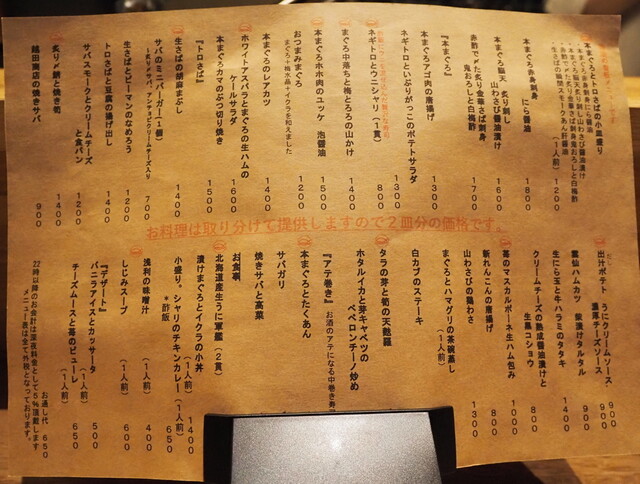 本まぐろとトロさばの小皿盛り
（1人前）1200
本まぐろ赤身刺身 にら醤油
1400
本まぐろ脳天 炙り刺し
山わさび醤油漬け
1600
赤酢で〆た炙り金華さば刺身
鬼おろしと白梅酢
1700
『本まぐろ』
本まぐろアゴ肉の唐揚げ
1400
ネギトロといぶりがっこのポテトサラダ
1300
ネギトロとウニシャリ（1貫）
800
まぐろ中落ちと梅とろろの山かけ
1400
本まぐろホホ肉のユッケ 泡醤油
1500
おつまみまぐろ
まぐろ＋梅水晶＋イクラを和えました
1200
本まぐろのレアカツ
1400
ホワイトアスパラとまぐろの生ハムの
ケールサラダ
1600
本まぐろカマのぶつ切り焼き
1500
『トロさば』
生さばの胡麻まぶし
1400
サバのミニバーガー（1個）
700
生さばとピーマンのなめろう
1200
トロさばと豆腐の揚げ出し
1400
サバスモークとクリームチーズ
と食パン
1200
炙り〆鯖と焼き筍
1400
越田商店の焼きサバ
900
お料理は取り分けて提供しますので2皿分の価格です。
出汁ポテト うにクリームソース 900
濃厚チーズソース 900
雲仙ハムカツ 紫漬けタルタル
900
生にら玉と牛ハラミのタタキ
1400
クリームチーズの熟成醤油漬けと
生黒コショウ
800
苺のマスカルポーネ生ハム包み
1000
新れんこんの唐揚げ
800
山わさびの鶏わさ
1300
まぐろとハマグリの茶碗蒸し
（1人前）
白カブのステーキ
タラの芽と筍の天麩羅
ホタルイカと芽キャベツの
ペペロンチーノ炒め
『アテ巻き』お酒のアテになる中巻き寿司
本まぐろとたくあん
サバガリ
焼きサバと高菜
お食事
北海道産生うに軍艦（2貫）
漬けまぐろとイクラの小丼
（1人前）1400
小盛り。シャリのチキンカレー
＊酢飯
（1人前）650
浅利の味噌汁
（1人前）400
しじみスープ
（1人前）600
『デザート』
バニラアイスとカッサータ
（1人前）500
チーズムースと苺のピューレ
（1人前）650
お通し代 650
22時以降のお会計は深夜料金として5％頂戴します
メニュー表は全て外税となっております。